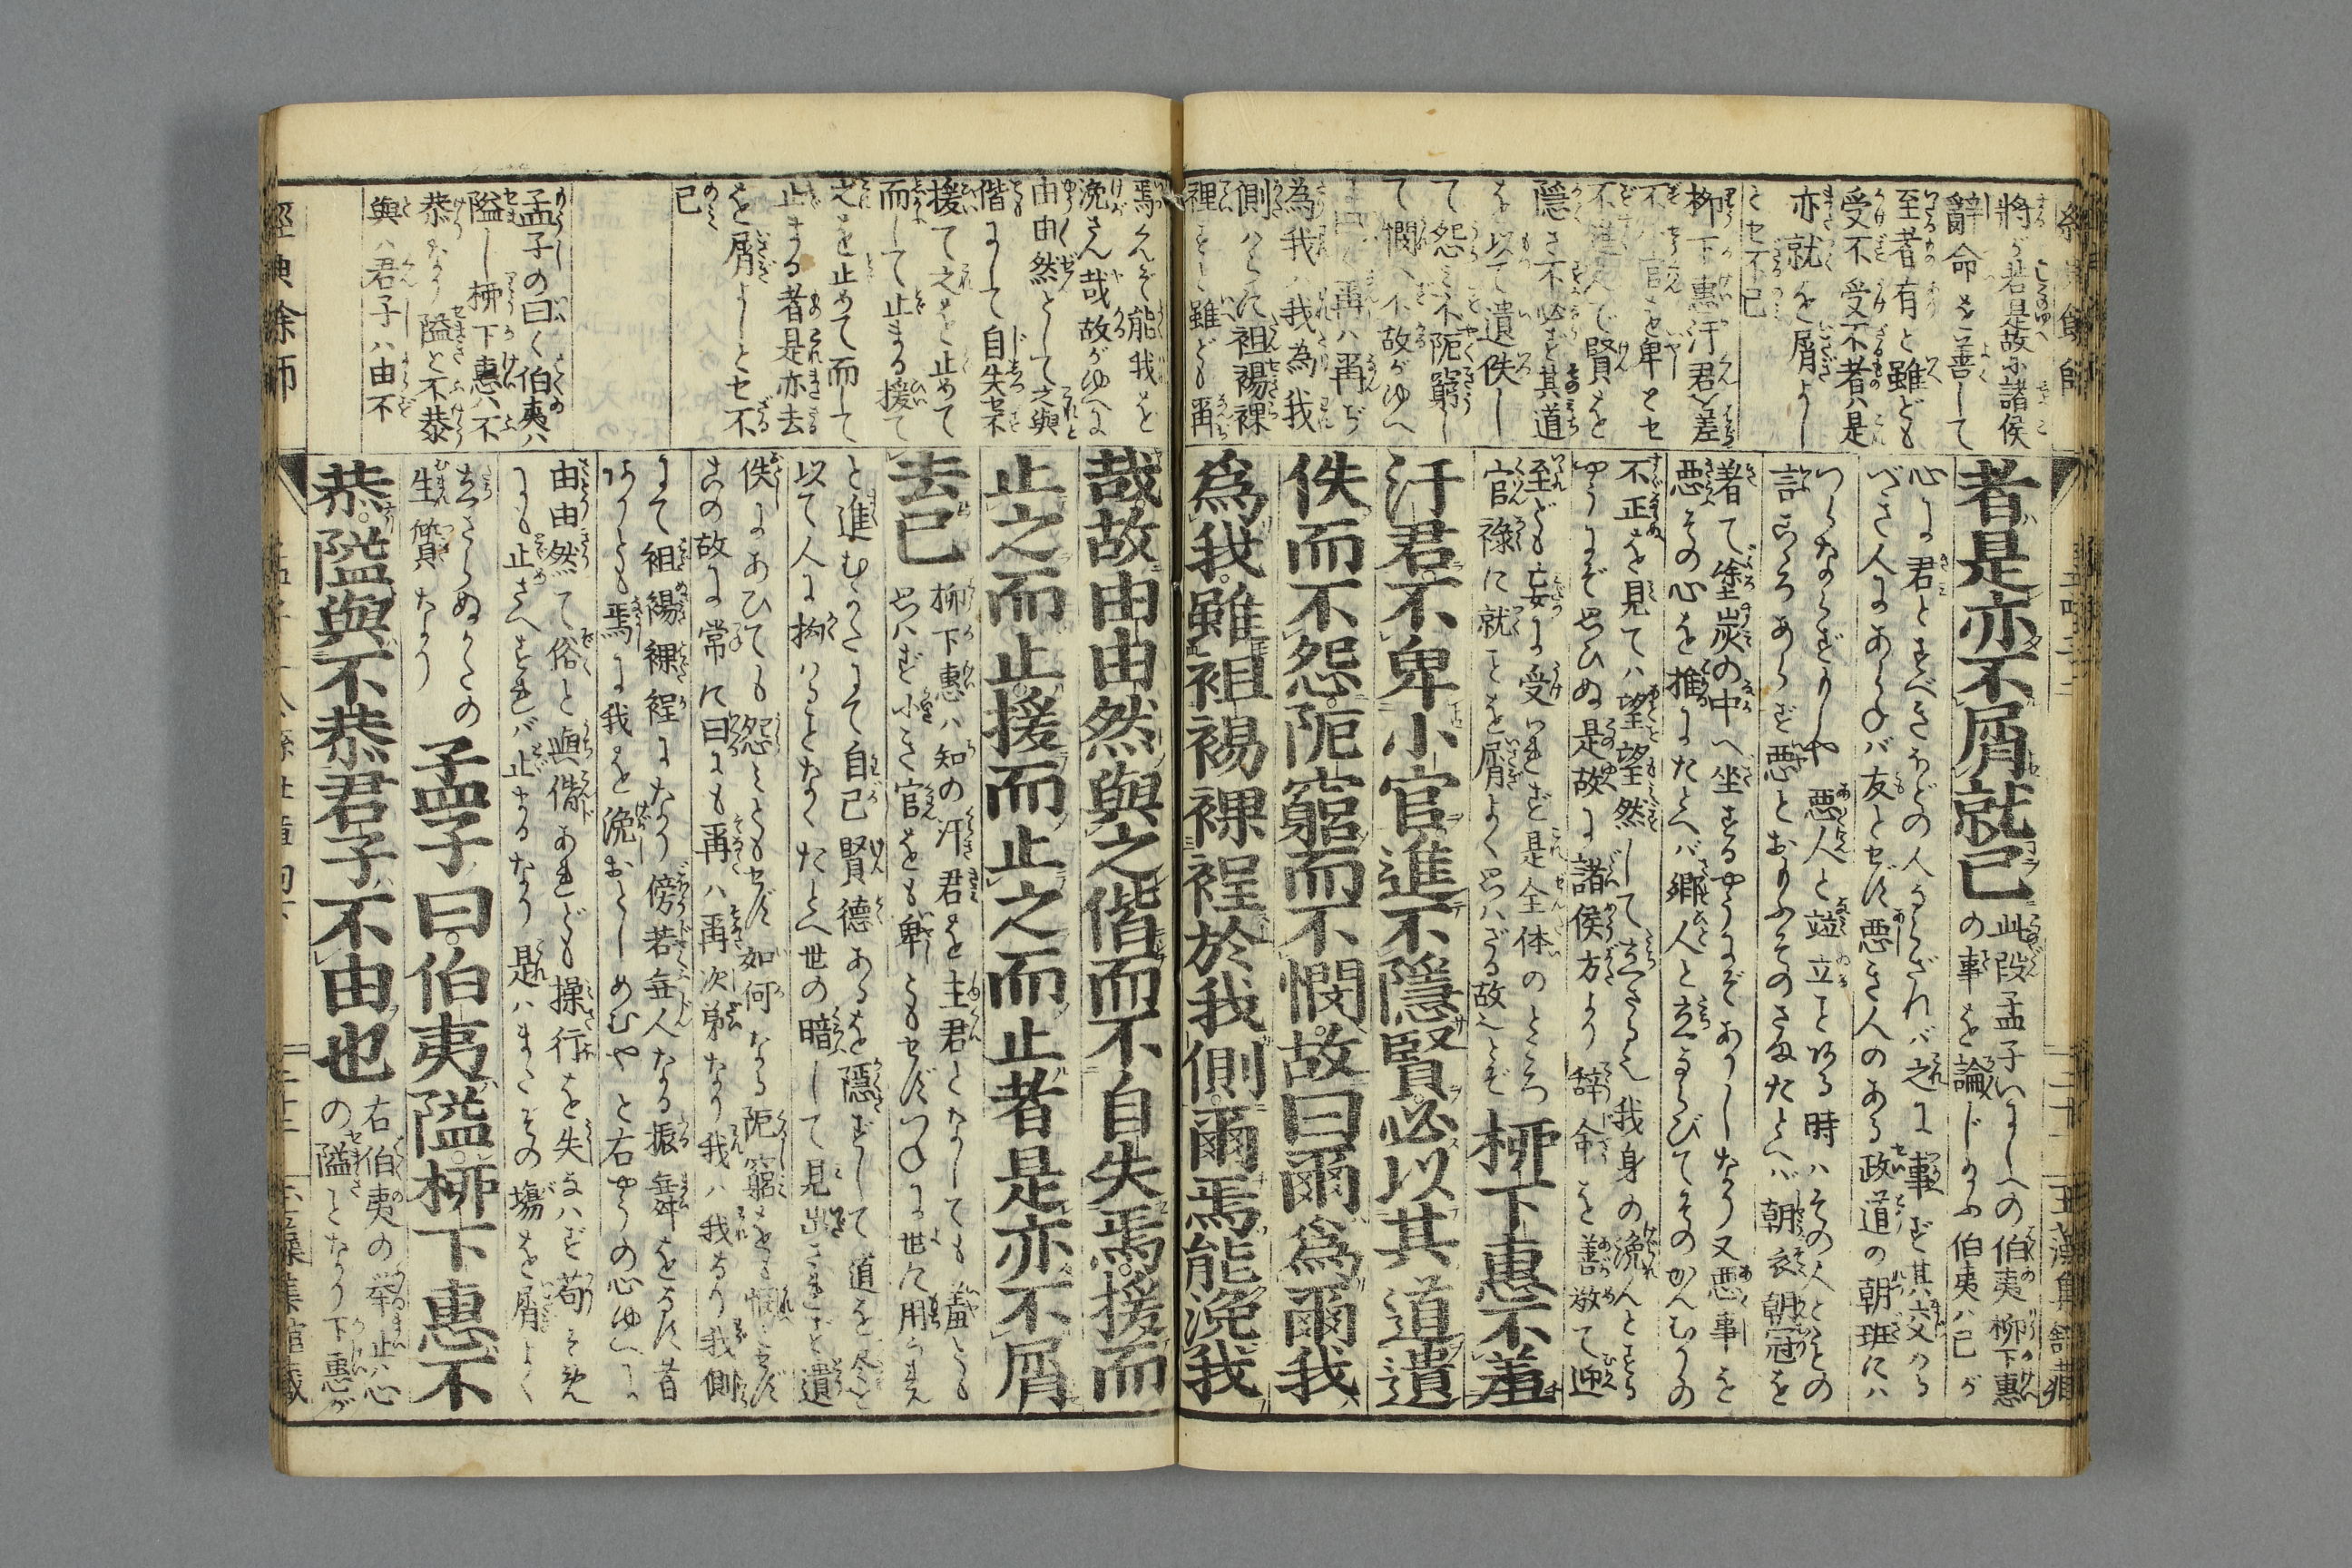 將が若是故に諸侯
辭命を善して
至者有と雖ども
受不受不者ハ是
亦就を屑よし
とセ不已
柳下惠汙君を羞
不小官を卑とセ
不進んで賢を
隱さ不必ず其道
を以て遺佚し
て怨ミ不阨窮し
て憫へ不故がゆへ
に曰く爾ハ爾ぢ
為我ハ我為我
側ハらに袒裼裸
裎すと雖ども爾
者是亦不屑就已
此段孟子いにしへの伯夷柳下惠
の事を論じ給ふ伯夷ハ己が
心に君とすべきほどの人ならざれバ之に事ず其六ヶる
づき人にあらねバ友とせず悪き人のある政道の朝班にハ
つらならずもしや悪人と竝立とゐる時ハその人ともの
言ごろあらず悪とおもふそのさまたとへバ朝衣朝冠を
著て塗炭の中へ坐するやうにぞありしなり又悪事を
悪その心を推にたとへバ郷人と立ならびてそのかんむりの
不正を見てハ望望然として立さるは我身の浼んとする
やうにぞ思ひぬ是故に諸侯方より辞命を善敬て迎
至ども妄に受られず是全体のところ
官祿に就ことを屑よく思ハざる故へとぞ
柳下惠不羞
汙君不卑小官進不隱賢必以其道遺
佚而不怨阨窮而不憫故曰爾爲爾我
爲我雖袒裼裸裎於我側爾焉能浼我
焉んぞ能我を
浼さん哉故がゆへに
由由然として之與
偕にして自失セ不
援て之を止めて
而して止まる援て
之を止めて而して
止まる者是亦去
を屑よしとセ不
已
孟子の曰く伯夷ハ
隘し柳下惠ハ不
恭なり隘と不恭
與ハ君子ハ由不
哉故由由然與之偕而不自失焉援而
止之而止援而止之而止者是亦不屑
去已
柳下惠ハ知の汙君を主君となしても羞とも
思ハず小さき官をも卑ともせずつねに世に用られん
と進むかたにて自己賢德あるを隱ずして道を尽を
以て人に拘ハることなくたとへ世の暗して見出されず遺
佚にあひても怨ミともせず如何なる阨窮をも憫ともせず
この故に常に曰にも爾ハ爾次弟なり我ハ我なり我側
にて袒裼裸裎になり傍若無人なる振舞をるに昔
ゐりとも焉に我を浼おとしめむやと右やうの心ゆへに
由由然て俗と與偕あれども操行を失なハず苟もそれ
にも止さへすれバ止まるなり是ハまたその塲を屑よく
立さらぬかたの
生質なり
孟子曰伯夷隘柳下惠不
恭隘與不恭君子不由也
右伯夷の挙止ハ心
の隘となり下惠が
經典餘師